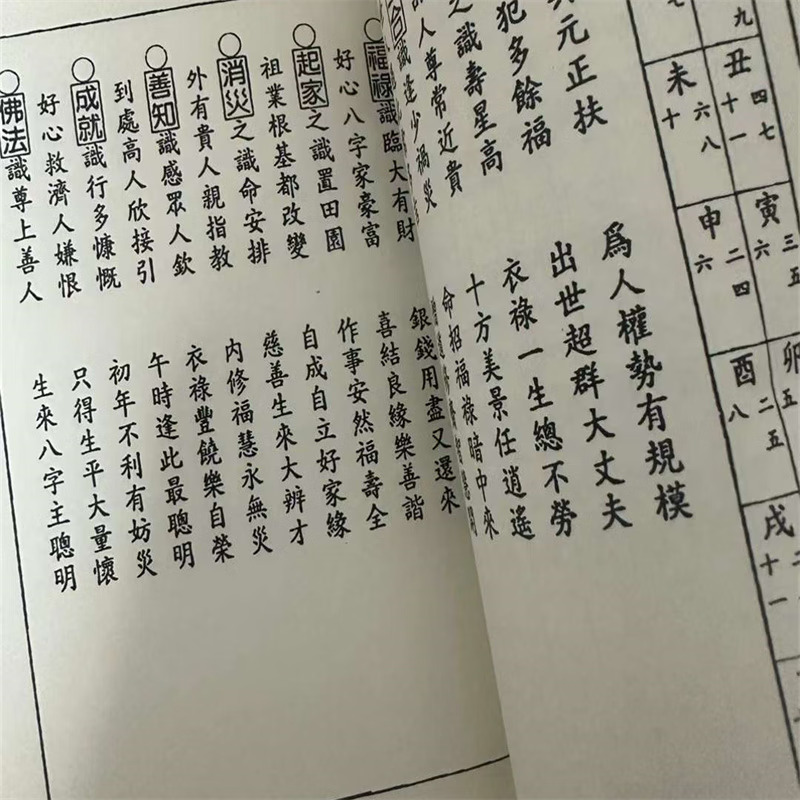 九
七
丑 四七 十一
未 六八 十
寅 三五 六
申 二四 六
卯 五
酉 二五 八
戌 十一
元正扶 爲人權勢有規模
犯多餘福 出世超群大丈夫
之識壽星高 衣祿一生總不勞
人尊常近貴 十方美景任逍遙
識逢少禍災 命招福祿暗中來
福祿識臨大有財 銀錢用盡又還來
好心八字家豪富 喜結良緣樂善諧
○起家之識置田園 作事安然福壽全
祖業根基都改變 自成自立好家緣
○消災之識命安排 慈善生來大辨才
外有貴人親指教 內修福慧永無災
○善知識感眾人欽 衣祿豐饒樂自榮
到處高人欣接引 午時逢此最聰明
○成就識行多慷慨 初年不利有妨災
好心救濟人嫌恨 只得生平大量懷
○佛法識尊上善人 生來八字主聰明